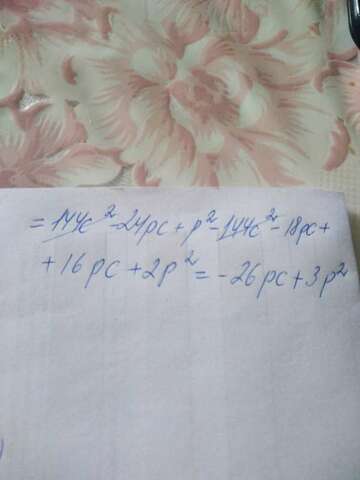 = 144c² - 24pc + p² - 144c² - 18pc +
+ 16pc + 2p² = - 26pc + 3p²